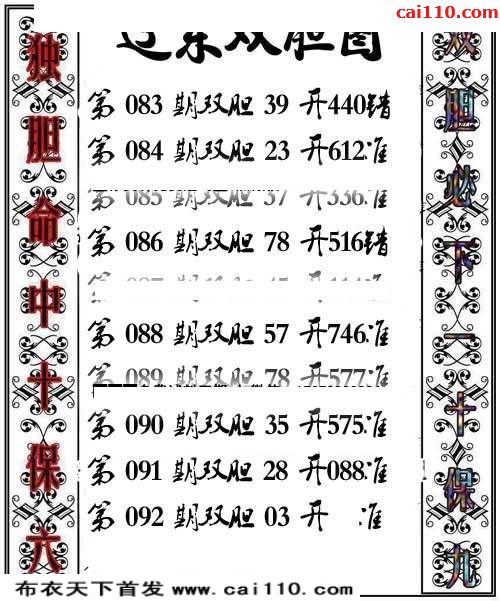 cai110.com
辽东双胆图
独胆命中十保六
第 083 期双胆 39 开440错
第 084 期双胆 23 开612准
第 085 期双胆 37 开336准
第 086 期双胆 78 开516错
第 088 期双胆 57 开746准
第 089 期双胆 78 开577准
第 090 期双胆 35 开575准
第 091 期双胆 28 开088准
第 092 期双胆 03 开 准
双胆必下一十保九
布衣天下首发 www.cai110.com